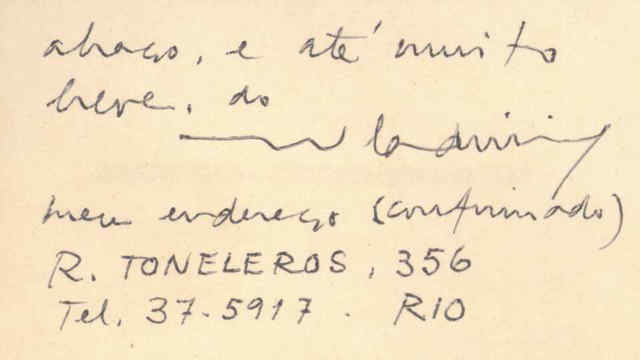 abraço, e até muito
breve, do
Wladimir
meu endereço (confirmado)
R. TONELEROS, 356
Tel. 37-5917. RIO